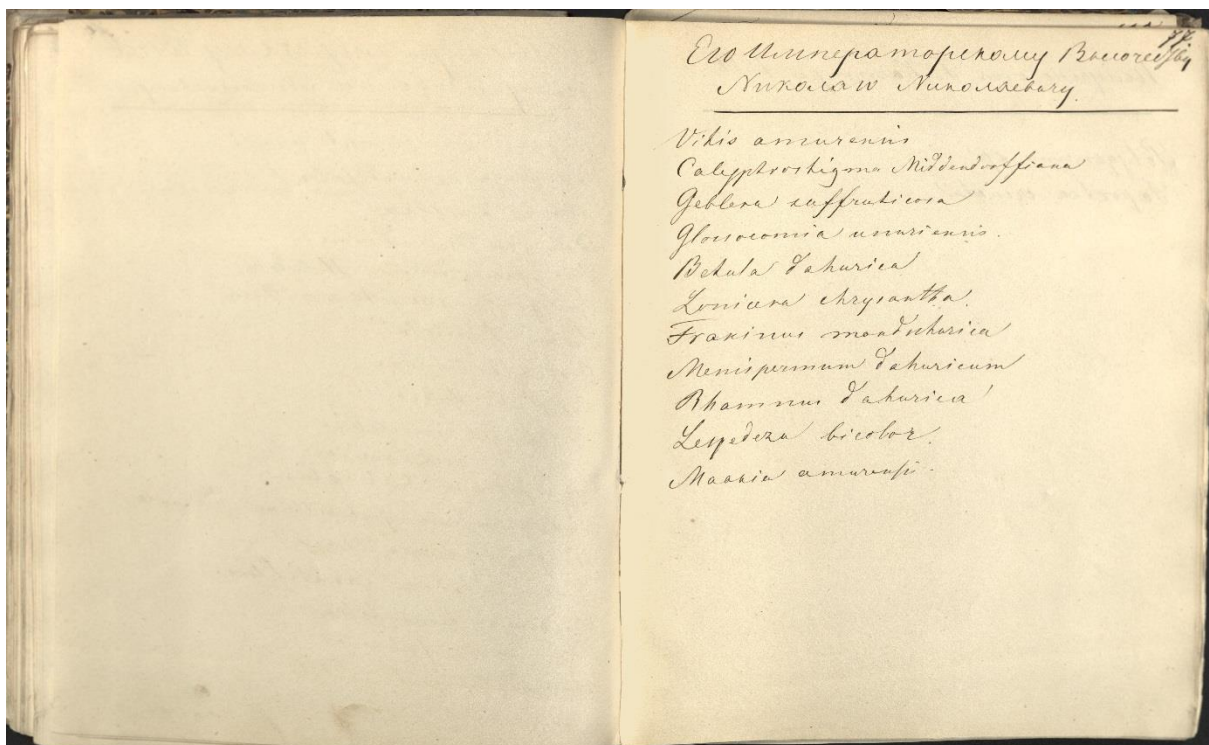 77.
Его Императорскому Высочеству
Николаю Николаевичу.
Vitis amurensis
Calyptrostigma Middendorffiana
Geblera suffruticosa
Glossocomia ussuriensis.
Betula dahurica
Lonicera chrysantha.
Fraxinus mandschurica
Menispermum dahuricum
Rhamnus dahurica
Lespedeza bicolor.
Maakia amurensis.